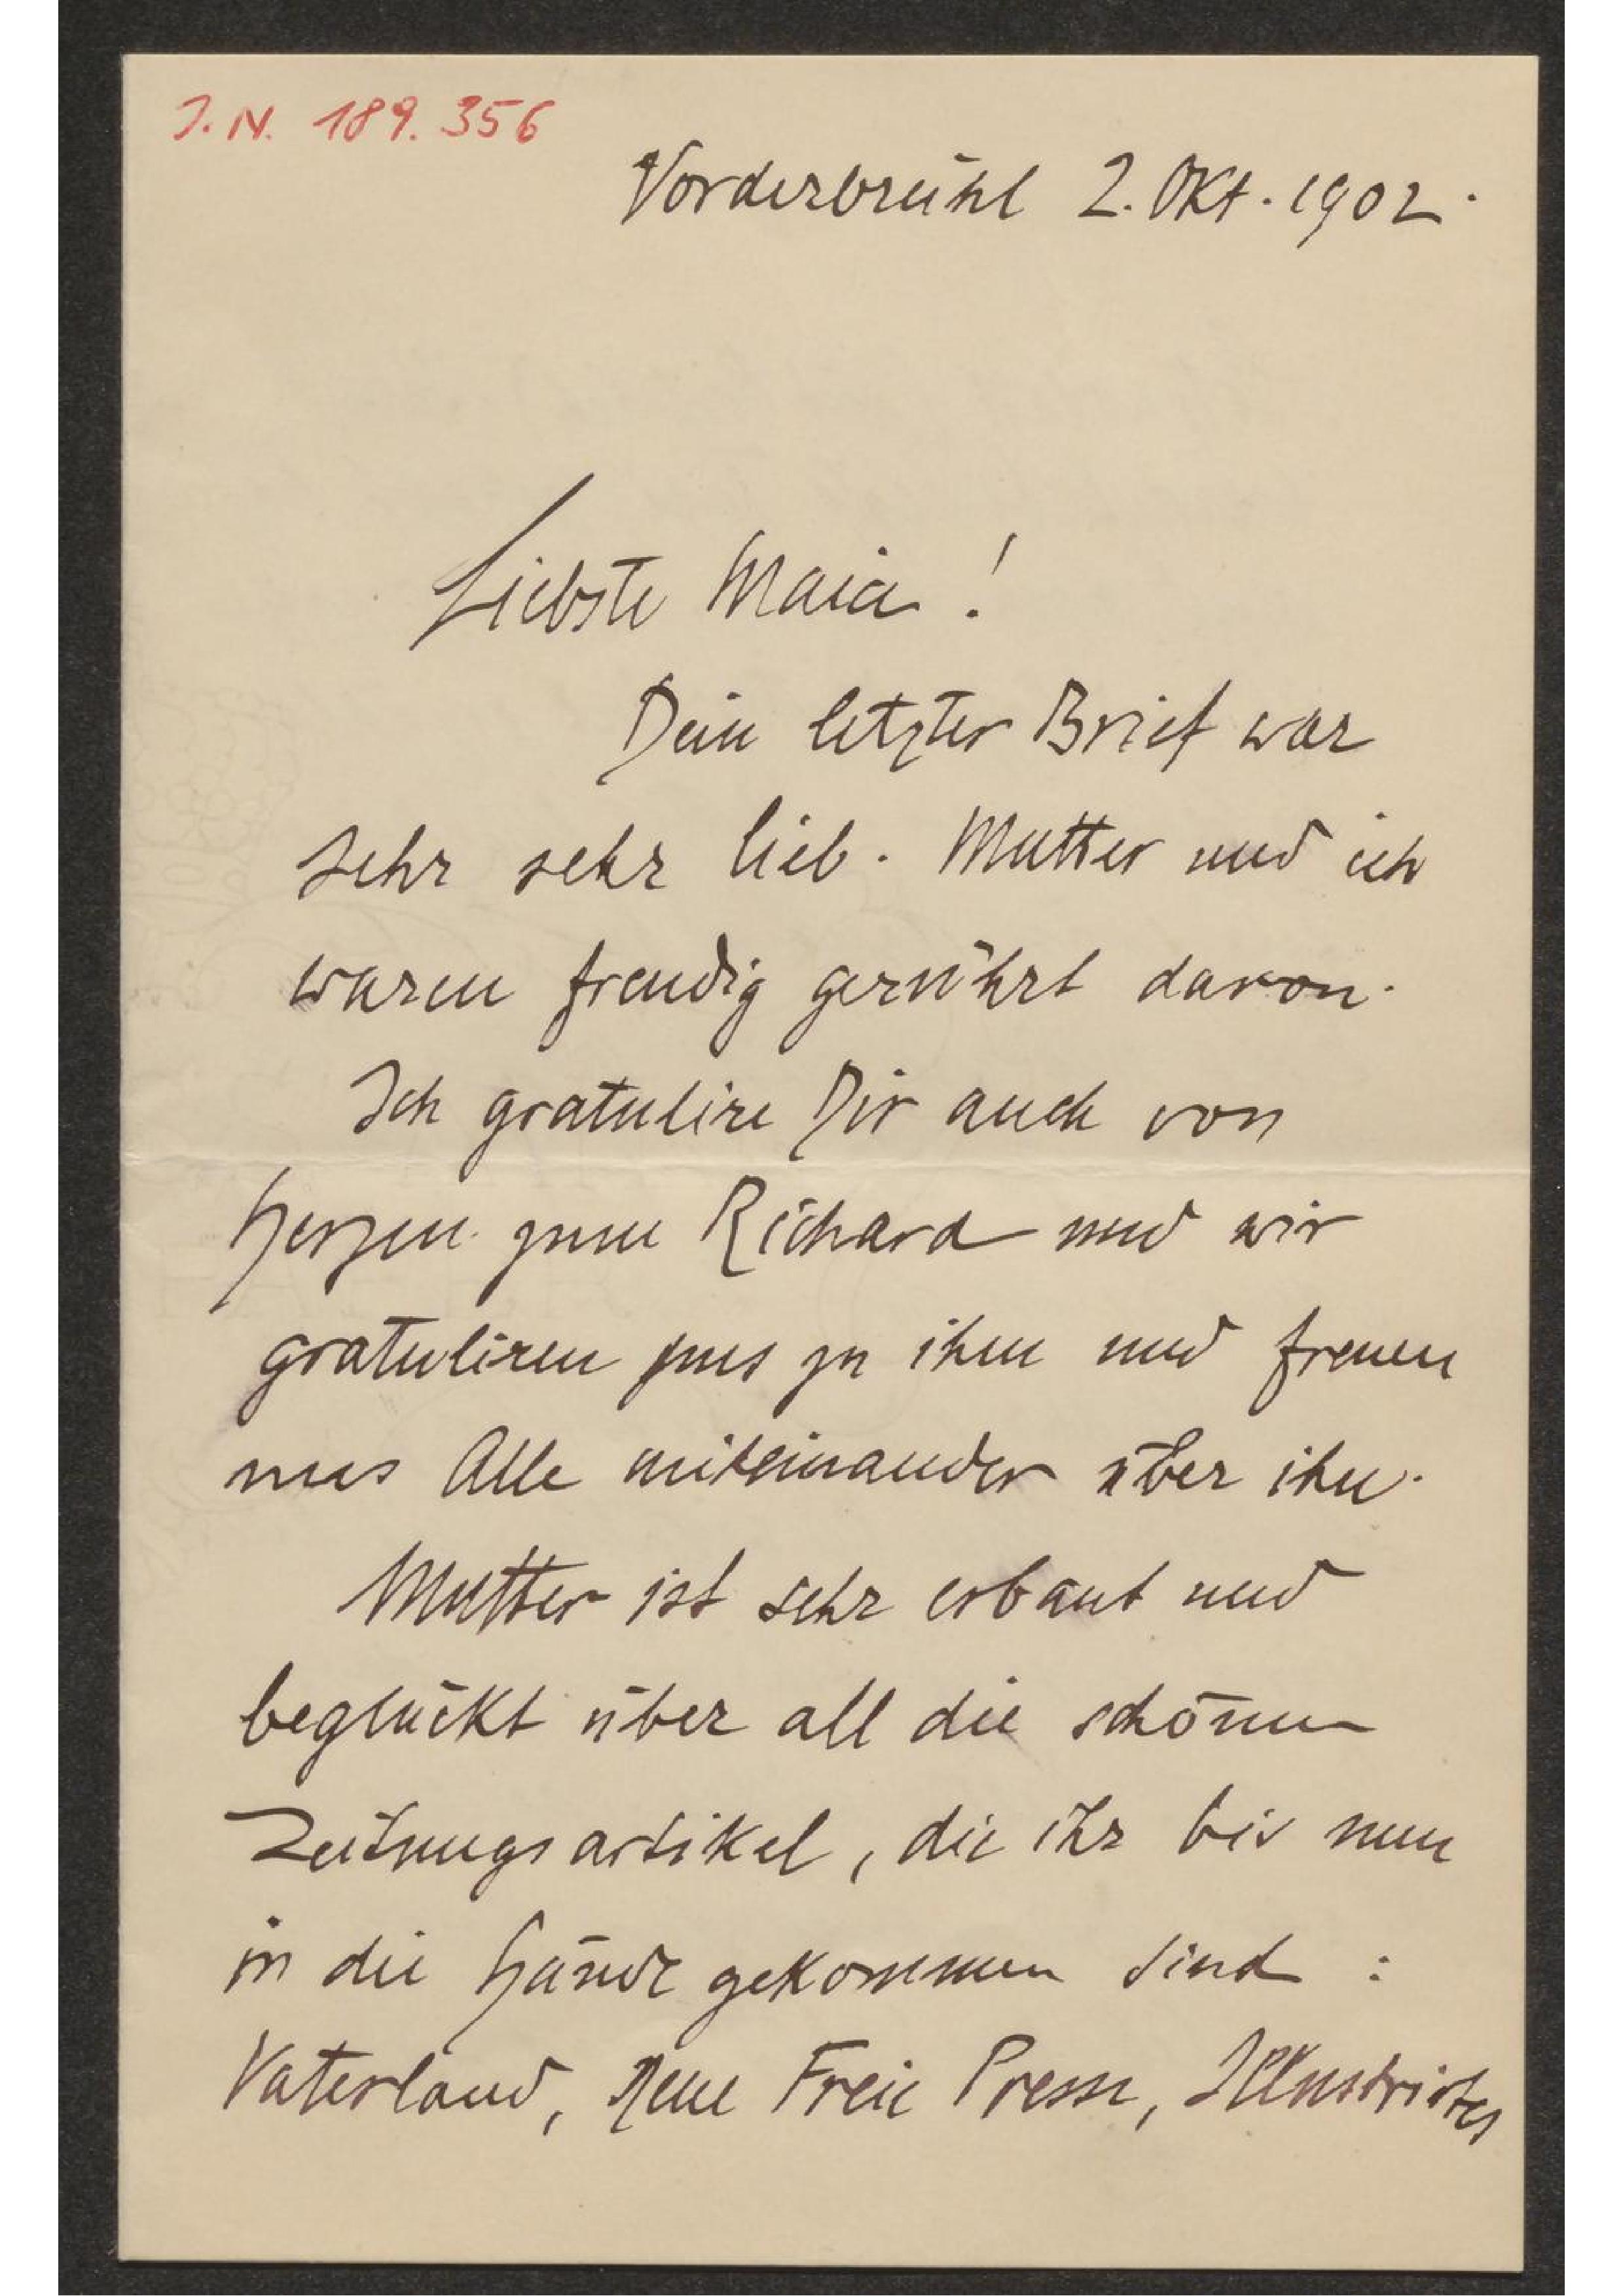 J.N. 189.356
Vorderbrühl 2. Okt. 1902.
Liebste Maia!
Dein letzter Brief war
sehr sehr lieb. Mutter und ich
waren freudig gerührt davon.
Ich gratulire Dir auch von
Herzen zum Richard und wir
gratuliren uns zu ihm und freuen
uns Alle miteinander über ihn.
Mutter ist sehr erbaut und
beglückt über all die schönen
Zeitungsartikel, die ihr bis nun
in die Hände gekommen sind :
Vaterland, Neue Freie Presse, Illustrirtes